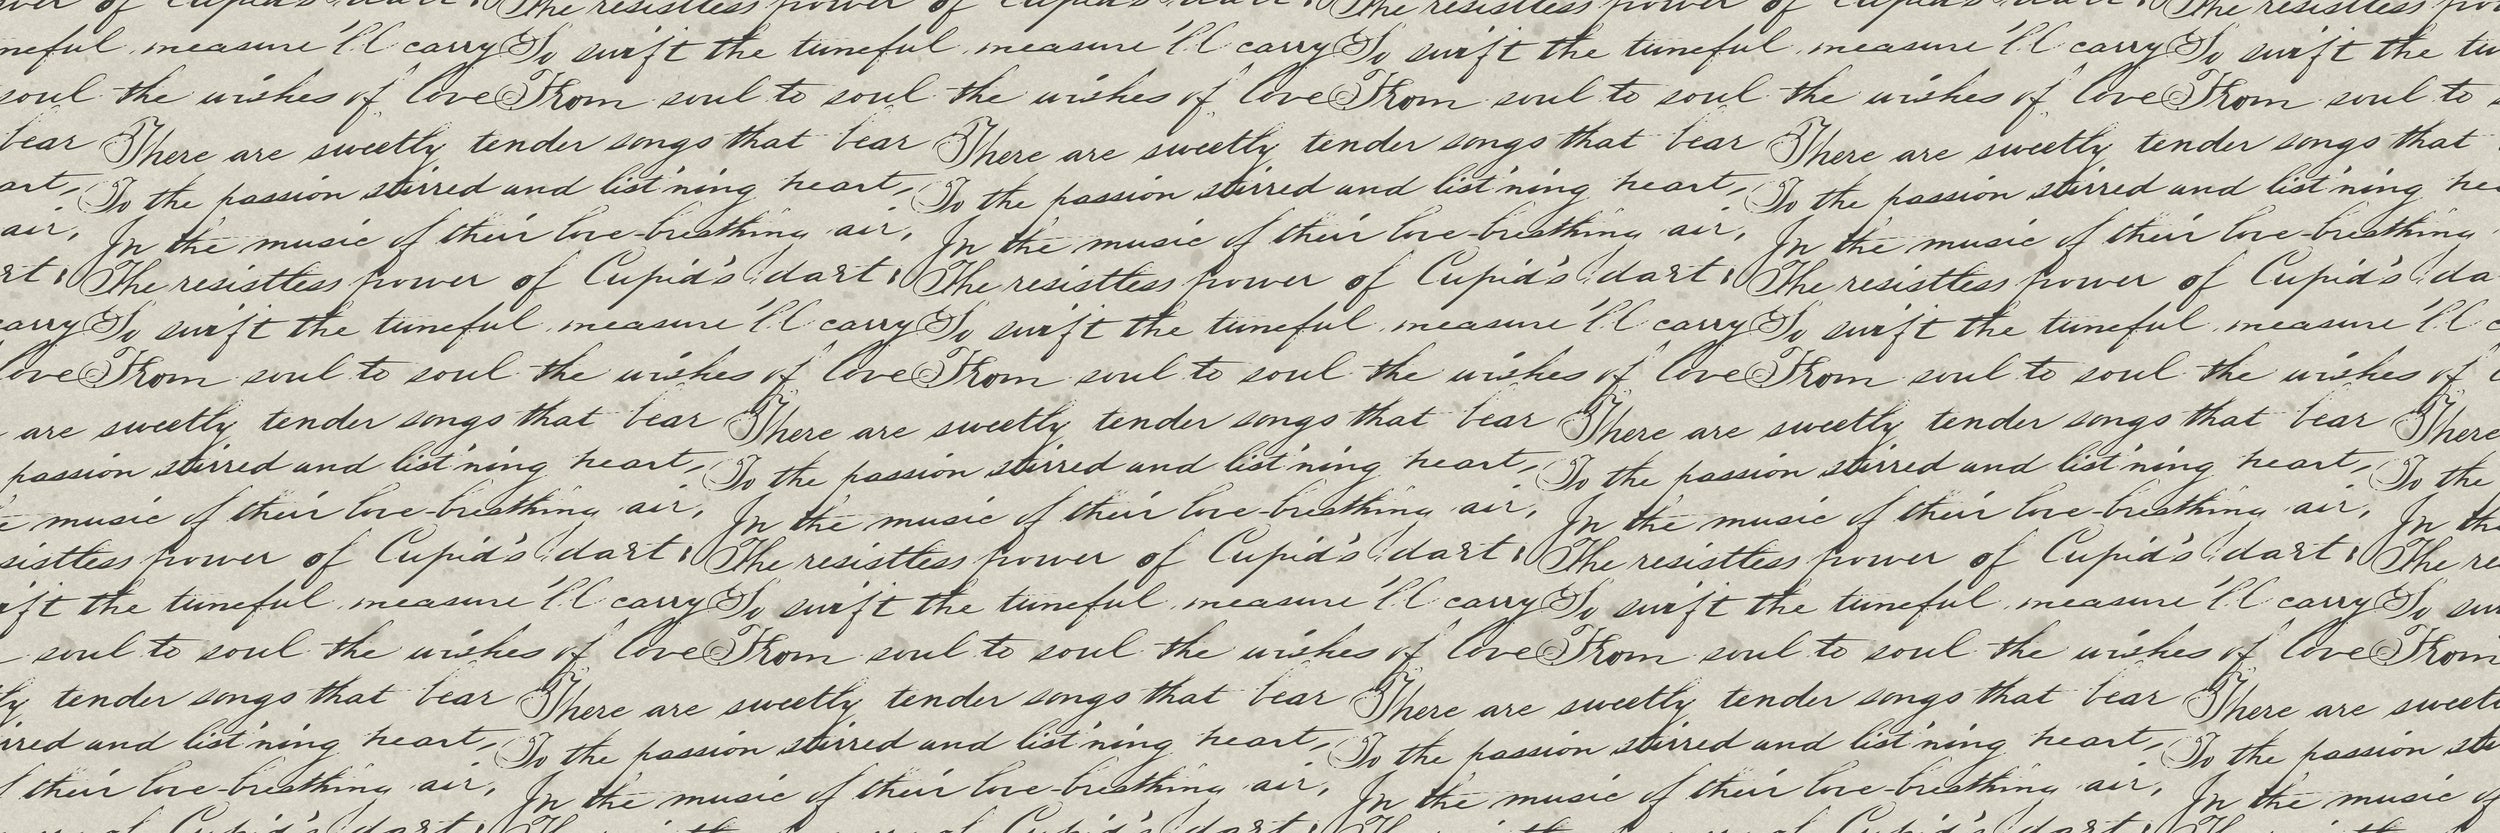 of Cupid's dart; The resistless power of Cupid's dart; The resistless power of Cupid's dart; The resistless
measure I'll carry So swift the tuneful measure I'll carry So swift the tuneful measure I'll carry So swift the
soul the wishes of love From soul to soul the wishes of love From soul to soul the wishes of love From soul to
bear There are sweetly tender songs that bear There are sweetly tender songs that bear There are sweetly tender songs that
To the passion stirred and list'ning heart, To the passion stirred and list'ning heart, To the passion stirred and list'ning
air, In the music of their love-breathing air, In the music of their love-breathing air, In the music of their love-breathing
The resistless power of Cupid's dart; The resistless power of Cupid's dart; The resistless power of Cupid's
carry So swift the tuneful measure I'll carry So swift the tuneful measure I'll carry So swift the tuneful measure I'll
love From soul to soul the wishes of love From soul to soul the wishes of love From soul to soul the wishes of
are sweetly tender songs that bear There are sweetly tender songs that bear There are sweetly tender songs that bear There
passion stirred and list'ning heart, To the passion stirred and list'ning heart, To the passion stirred and list'ning heart, To the
music of their love-breathing air, In the music of their love-breathing air, In the music of their love-breathing air, In the
power of Cupid's dart; The resistless power of Cupid's dart; The resistless power of Cupid's dart; The
the tuneful measure I'll carry So swift the tuneful measure I'll carry So swift the tuneful measure I'll carry So
soul to soul the wishes of love From soul to soul the wishes of love From soul to soul the wishes of love From
tender songs that bear There are sweetly tender songs that bear There are sweetly tender songs that bear There are
and list'ning heart, To the passion stirred and list'ning heart, To the passion stirred and list'ning heart, To the passion
their love-breathing air, In the music of their love-breathing air, In the music of their love-breathing air, In the music of
of Cupid's dart; The of Cupid's dart; The of Cupid's dart; The